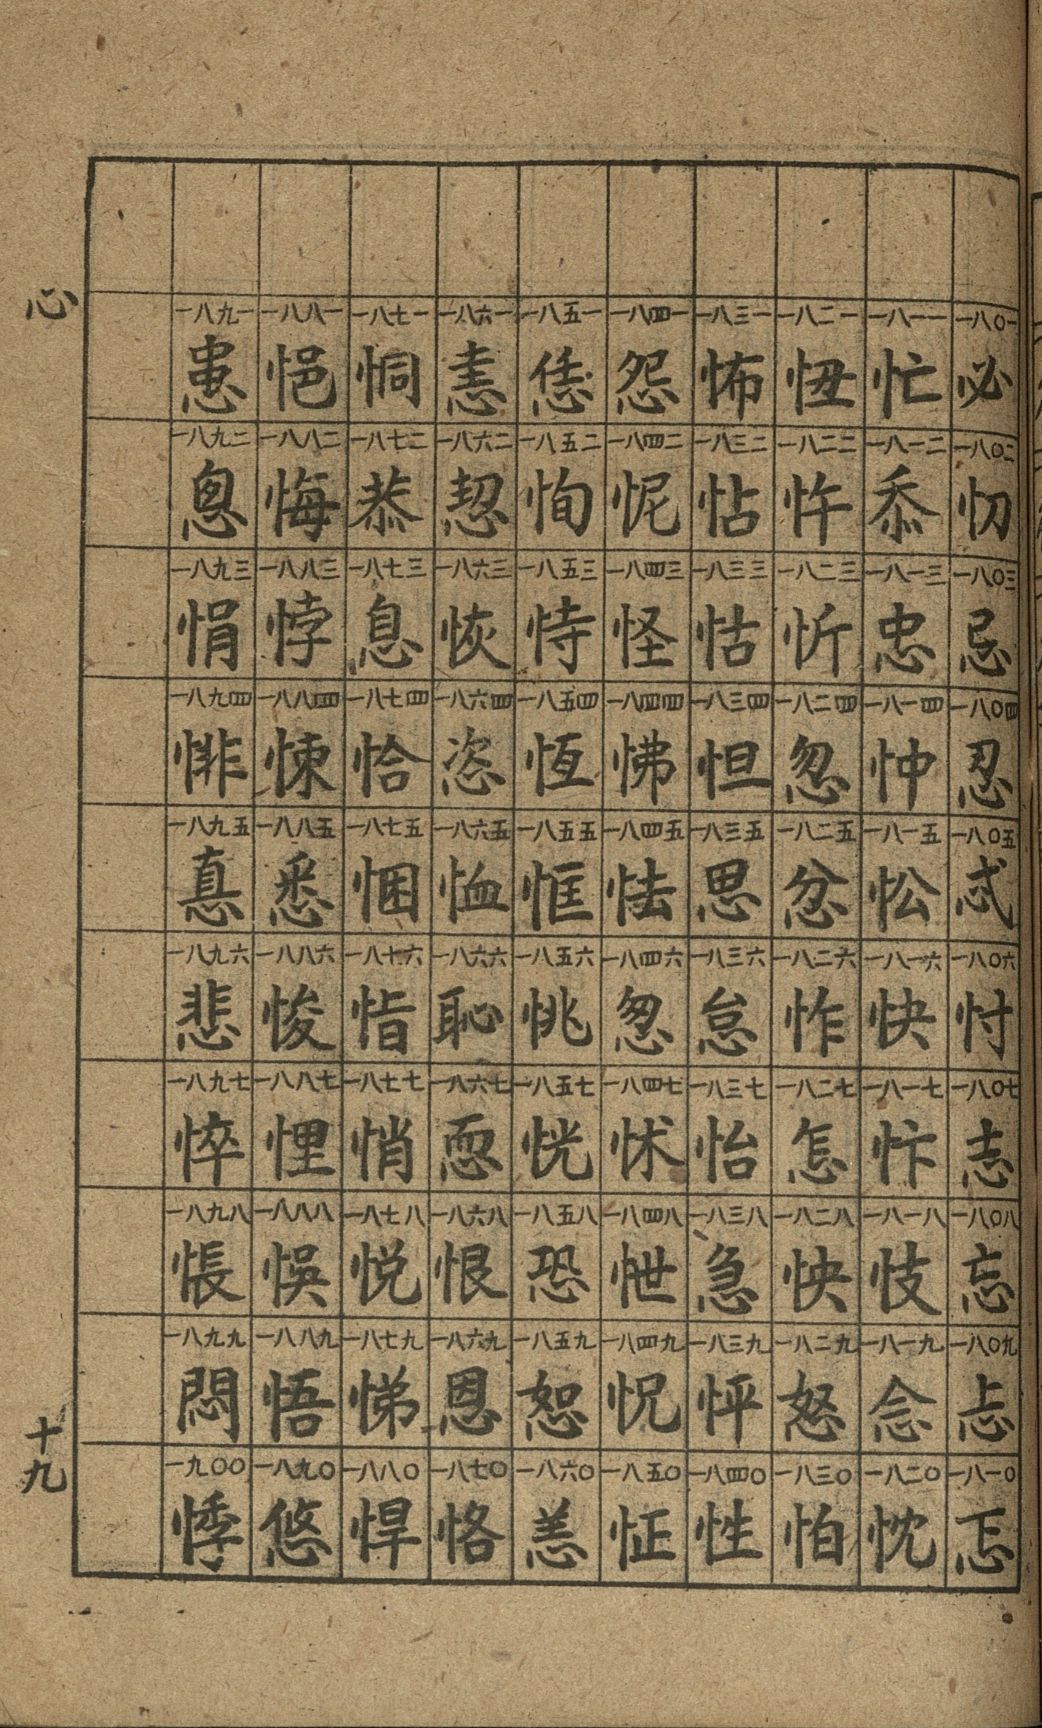 心
一八〇一 必 一八〇二 忉 一八〇三 忌 一八〇四 忍 一八〇五 忒 一八〇六 忖 一八〇七 志 一八〇八 忘 一八〇九 忐 一八一〇 忑
一八一一 忙 一八一二 忝 一八一三 忠 一八一四 忡 一八一五 忪 一八一六 快 一八一七 忭 一八一八 忮 一八一九 念 一八二〇 忱
一八二一 忸 一八二二 忤 一八二三 忻 一八二四 忽 一八二五 忿 一八二六 怍 一八二七 怎 一八二八 怏 一八二九 怒 一八三〇 怕
一八三一 怖 一八三二 怗 一八三三 怙 一八三四 怛 一八三五 思 一八三六 怠 一八三七 怡 一八三八 急 一八三九 怦 一八四〇 性
一八四一 怨 一八四二 怩 一八四三 怪 一八四四 怫 一八四五 怯 一八四六 怱 一八四七 怵 一八四八 怈 一八四九 怳 一八五〇 怔
一八五一 恁 一八五二 恂 一八五三 恃 一八五四 恆 一八五五 恇 一八五六 恌 一八五七 恍 一八五八 恐 一八五九 恕 一八六〇 恙
一八六一 恚 一八六二 恝 一八六三 恢 一八六四 恣 一八六五 恤 一八六六 恥 一八六七 恧 一八六八 恨 一八六九 恩 一八七〇 恪
一八七一 恫 一八七二 恭 一八七三 息 一八七四 恰 一八七五 悃 一八七六 恉 一八七七 悄 一八七八 悅 一八七九 悌 一八八〇 悍
一八八一 悒 一八八二 悔 一八八三 悖 一八八四 悚 一八八五 悉 一八八六 悛 一八八七 悝 一八八八 悞 一八八九 悟 一八九〇 悠
一八九一 患 一八九二 悤 一八九三 悁 一八九四 悱 一八九五 悳 一八九六 悲 一八九七 悴 一八九八 悵 一八九九 悶 一九〇〇 悸
十九